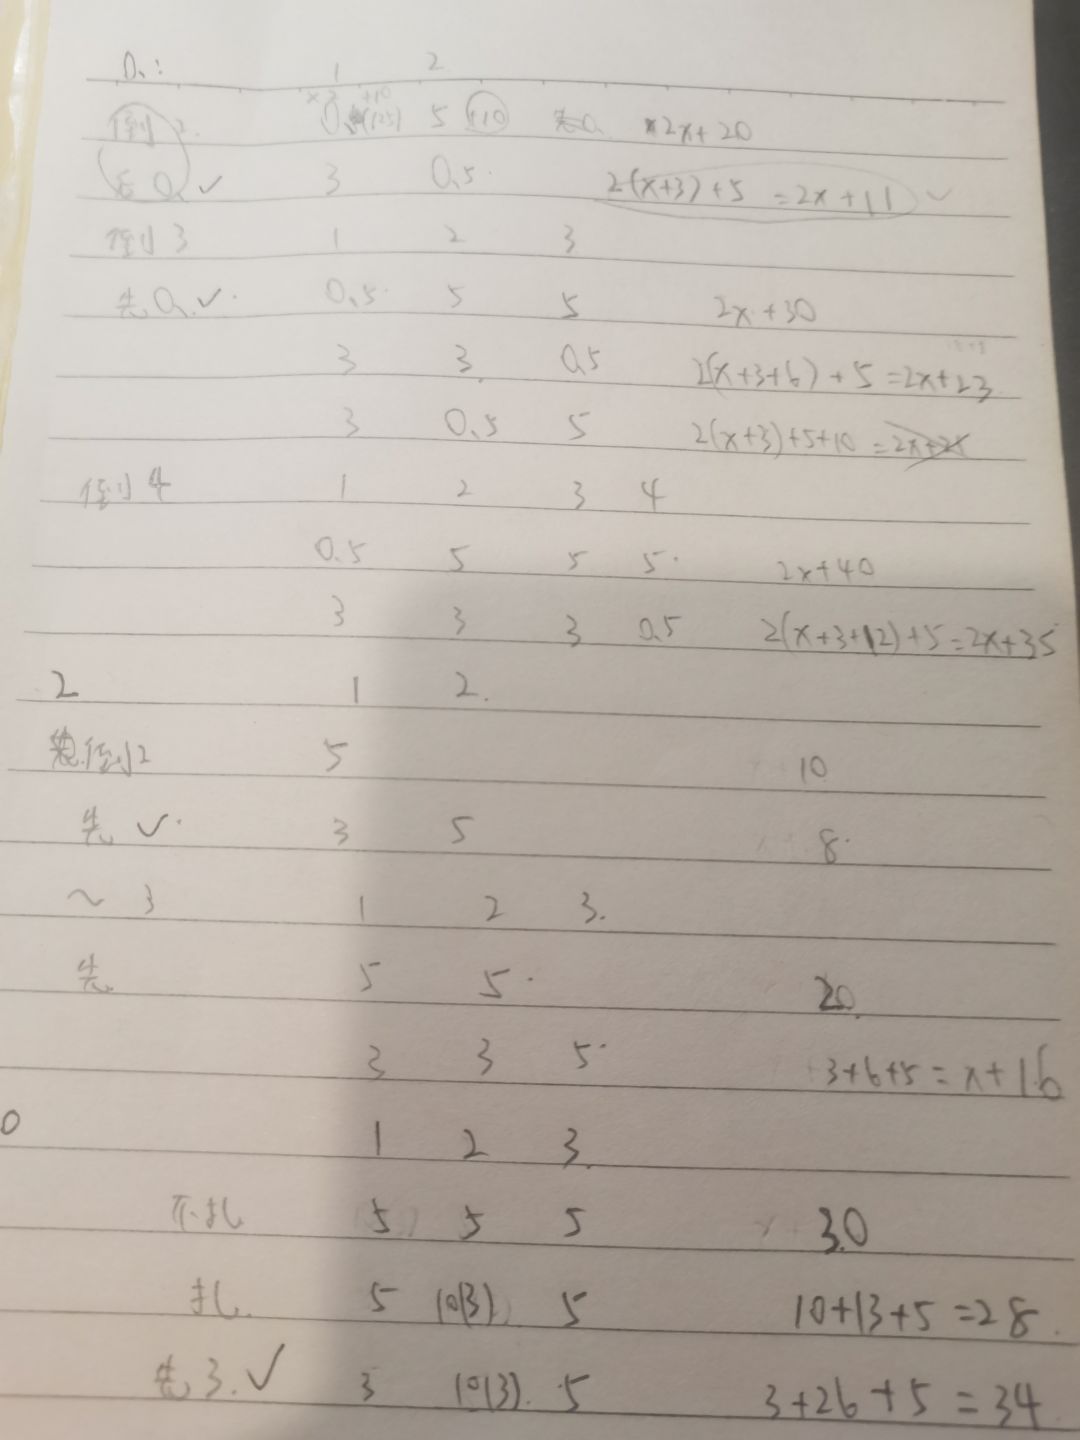 1 2
倒 2. 5 +10 2x+20
先 ✓ 3 0.5 2(x+3)+5 =2x+11 ✓
倒 3 1 2 3
先 ✓. 0.5 5 5 2x+30
3 3 0.5 2(x+3+6)+5=2x+23
3 0.5 5 2(x+3)+5+10
倒 4 1 2 3 4
0.5 5 5 5 2x+40
3 3 3 0.5 2(x+3+12)+5=2x+35
2 1 2.
倒2 5 10
先 ✓ 3 5 8
~ 3 1 2 3.
先 5 5 20
3 3 5 3+6+5=x+16
0 1 2 3
不扎 5 5 5 30
扎 5 10(3) 5 10+13+5=28.
先3.✓ 3 10(3). 5 3+26+5=34